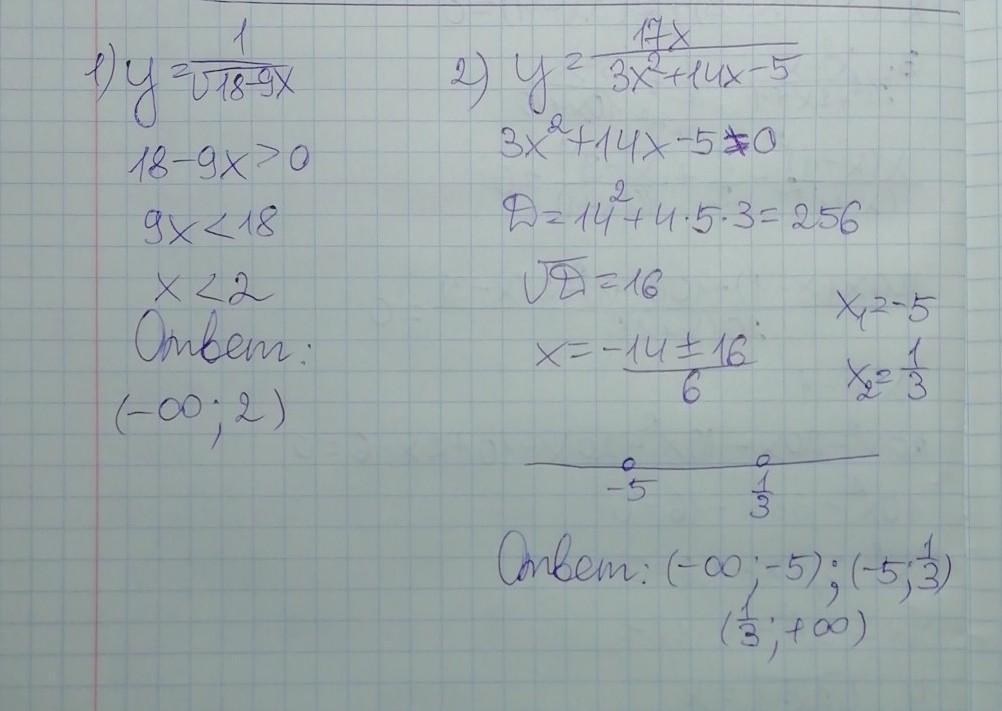 1) y = 1/√18-9x
18-9x>0
9x<18
x<2
Ответ:
(-∞; 2)
2) y = 17x/3x²+14x-5
3x²+14x-5≠0
D=14²+4·5·3=256
√D=16
x = -14±16/6
x₁=-5
x₂=1/3
-5 1/3
Ответ: (-∞;-5);(-5;1/3)
(1/3;+∞)